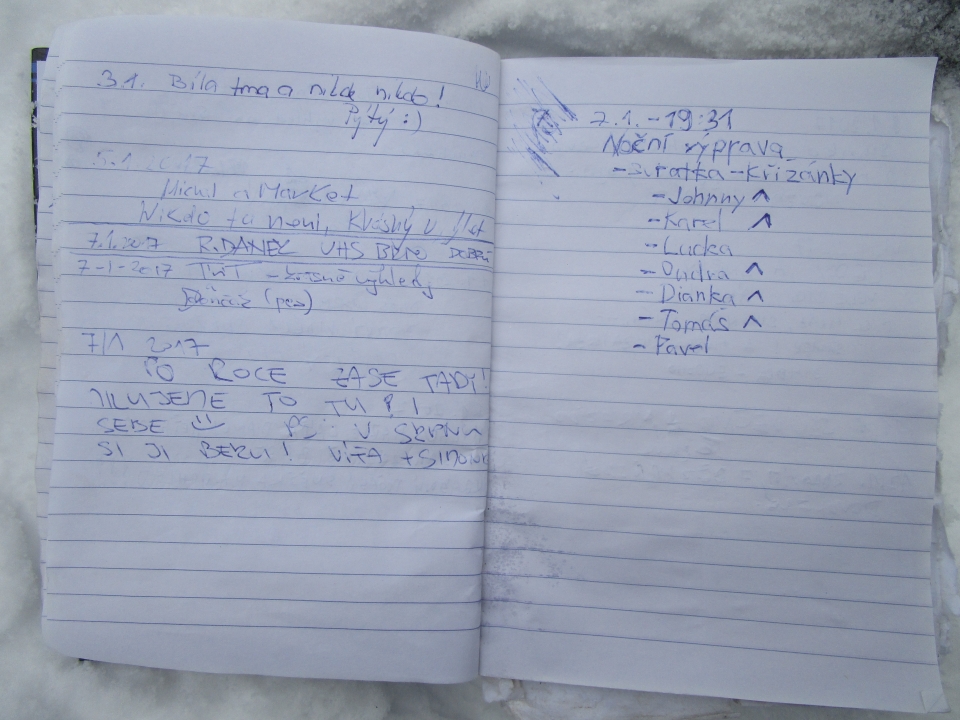 .3.1. Bíla tma a nikde nikdo!
Pýtý :)
5.1.2017
Michal a Market
Nikdo tu není, krásný v
7.1.2017 R.DANEC VHS BRNO DOBRÝ
7-1-2017 - krásné výhledy
(pes)
7/1 2017
PO ROCE ZASE TADY!
MILUJEME TO TU I
SEBE V SRPNU
SI JI BERU! VÍŤA +
7.1. - 19:31
Noční výprava
- Svratka - Křižánky
- Johnny ^
- Karel ^
- Lucka
- Ondra ^
- Dianka ^
- Tomáš ^
- Pavel